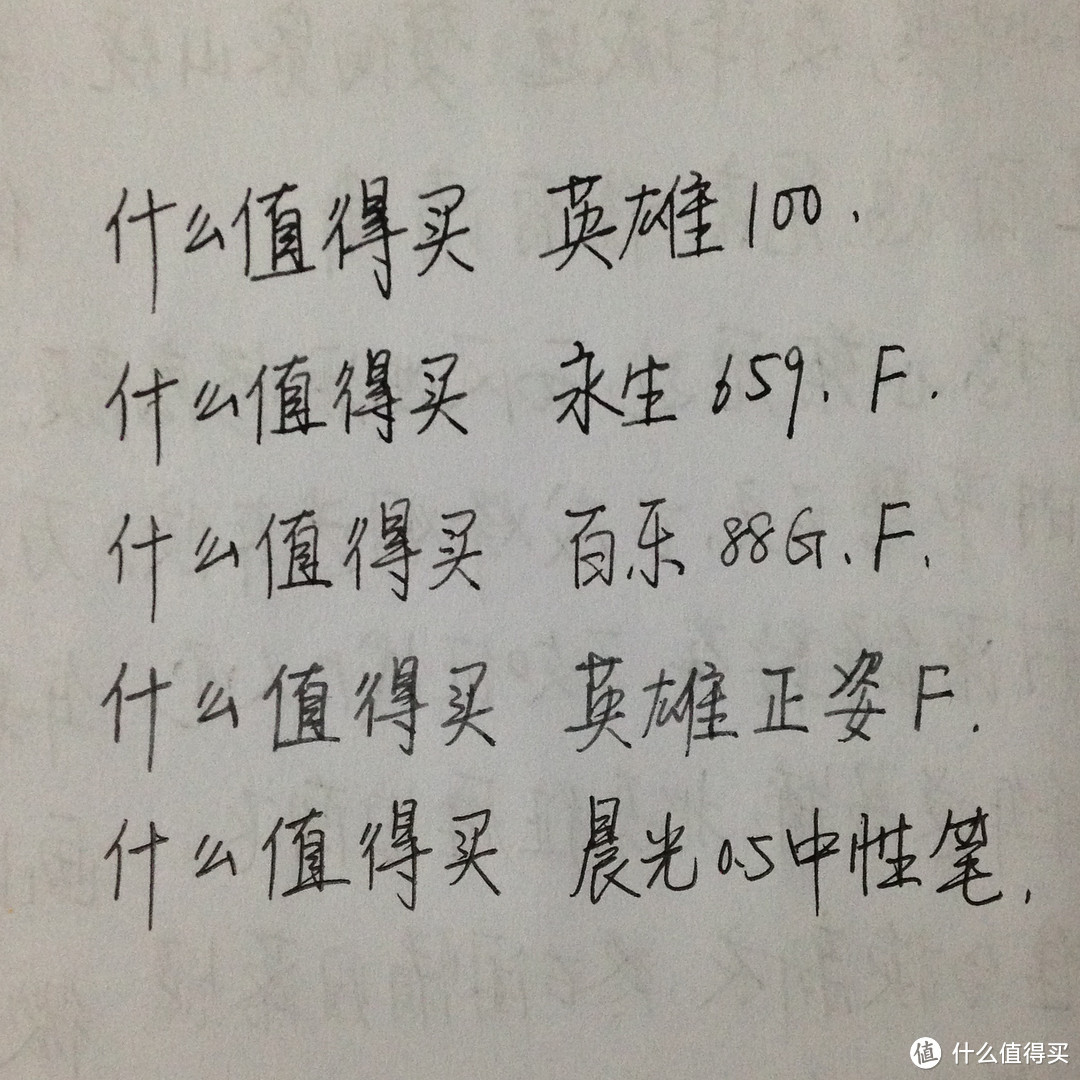 什么值得买 英雄100.
什么值得买 永生659. F.
什么值得买 百乐88G. F.
什么值得买 英雄正姿F.
什么值得买 晨光0.5中性笔.
值 什么值得买